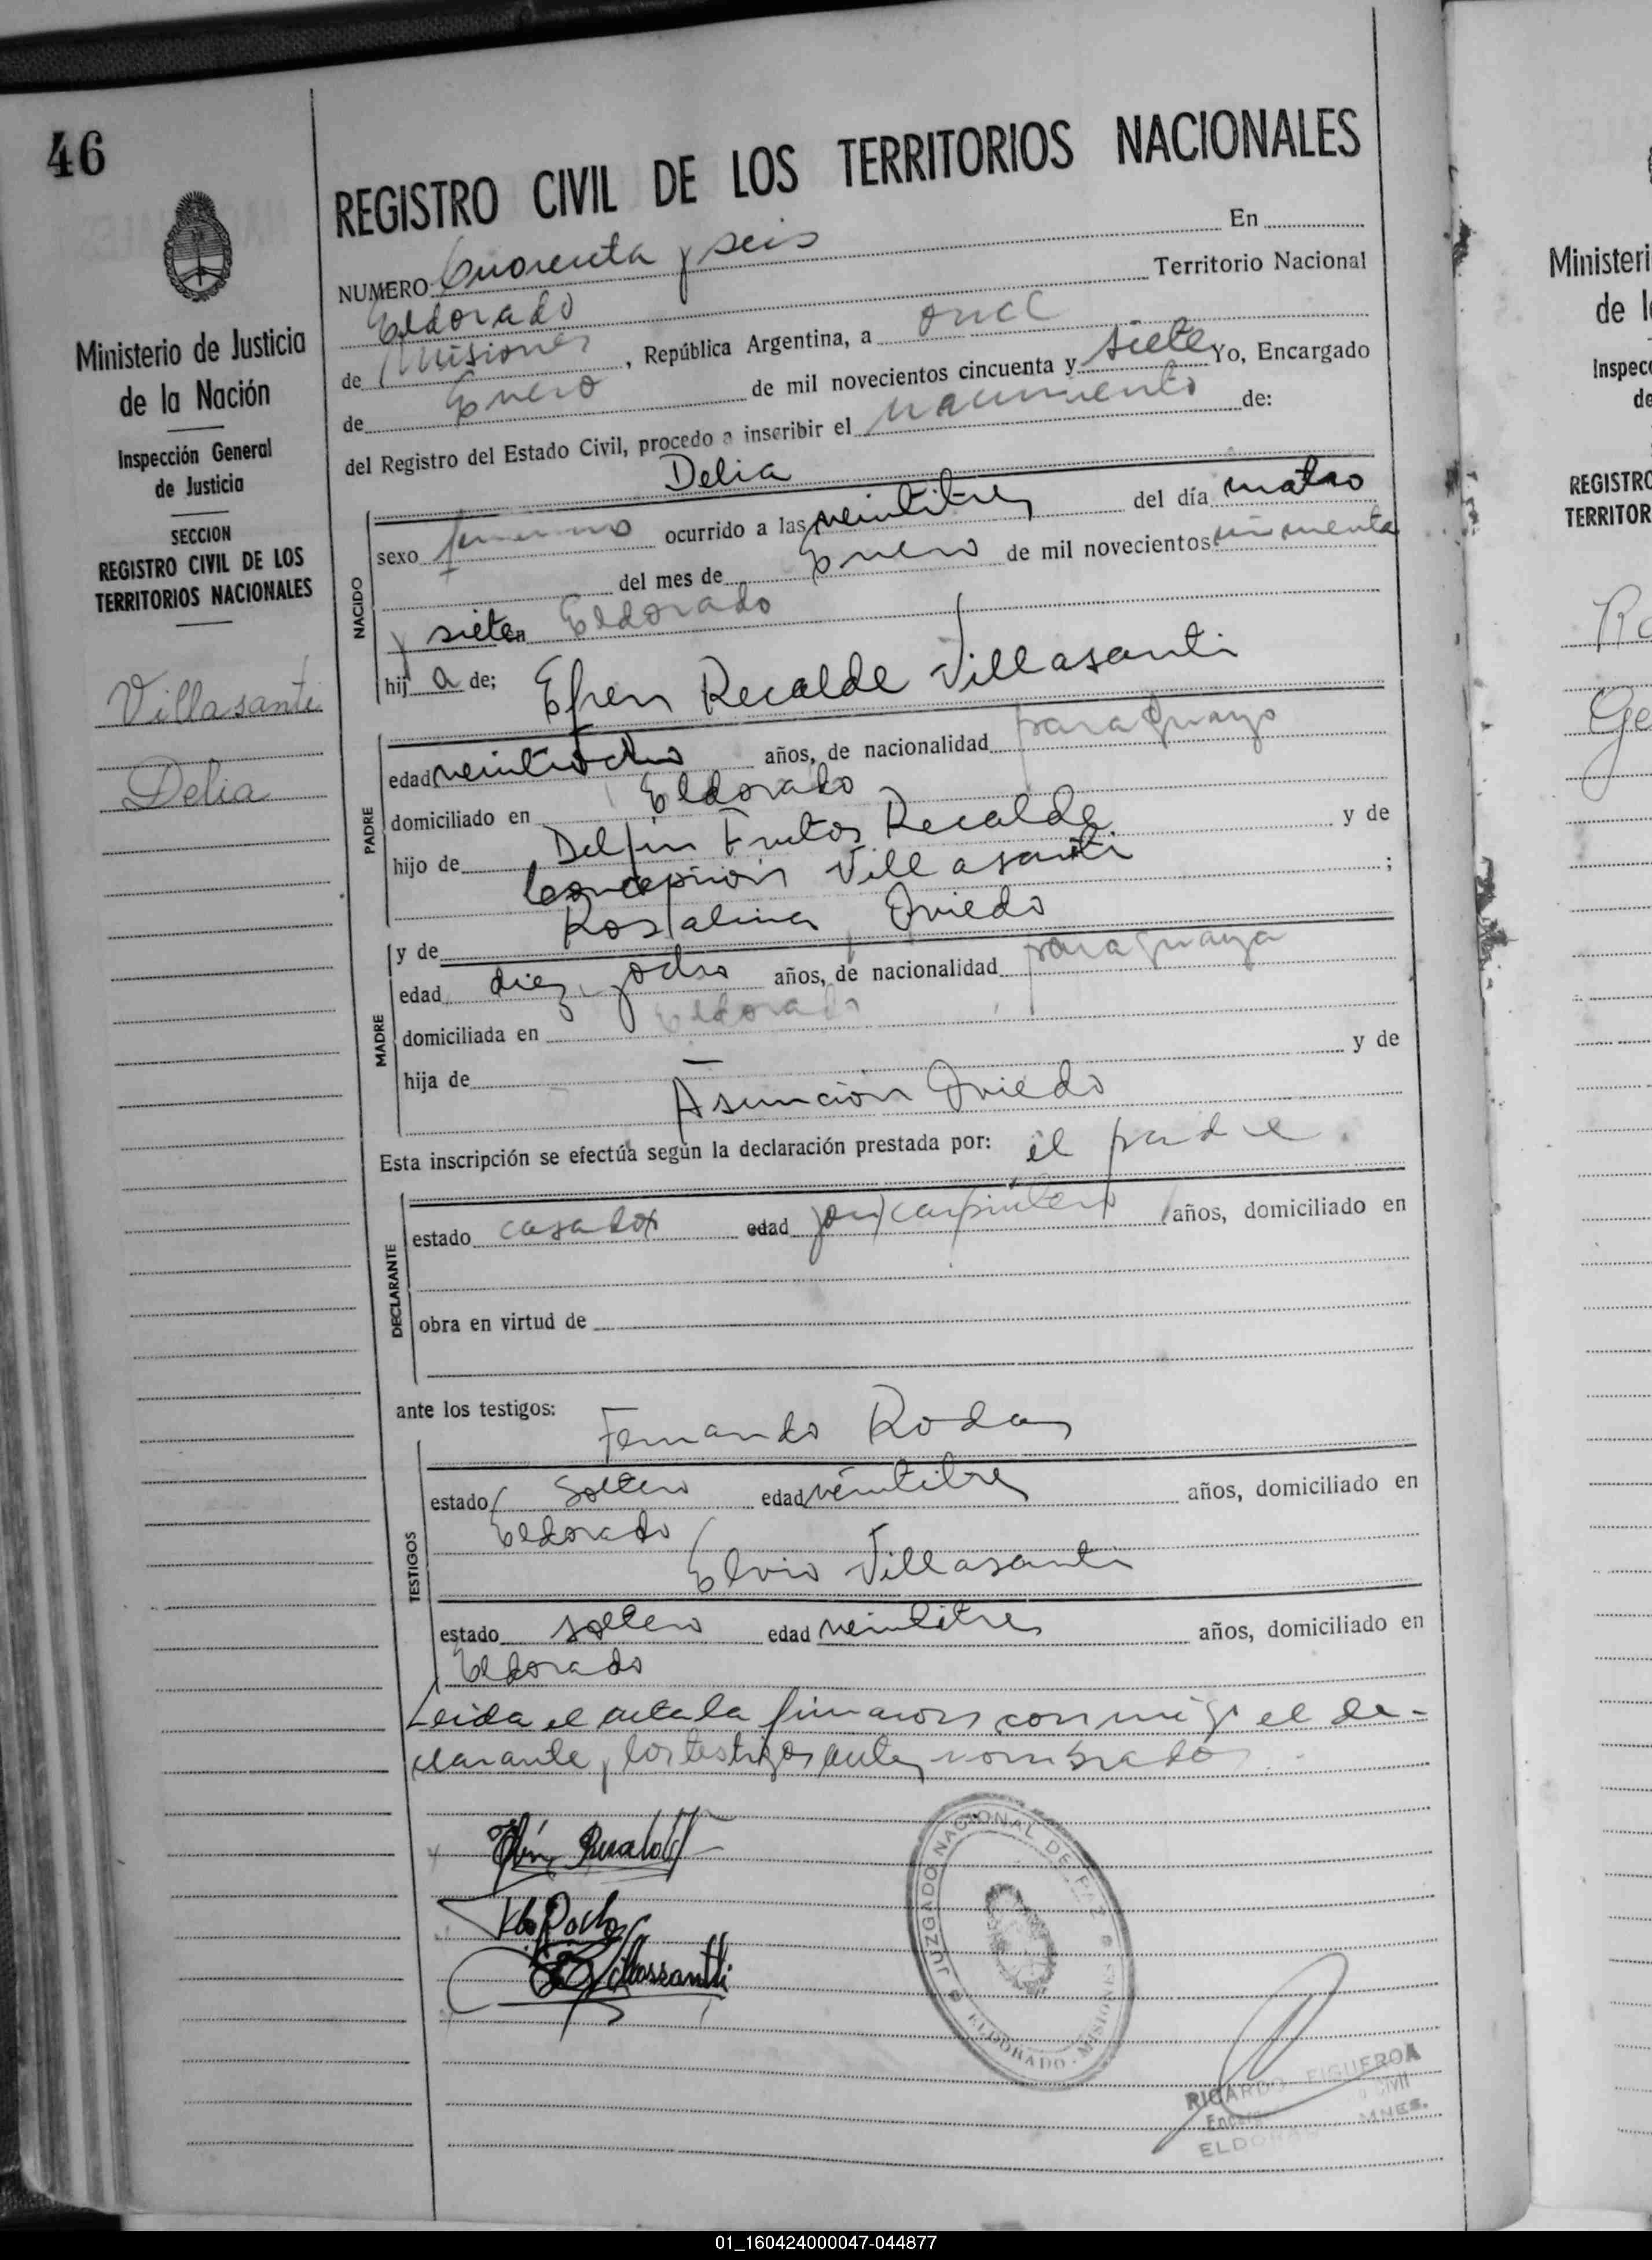 46
Ministerio de Justicia
de la Nación
Inspección General
de Justicia
SECCION
REGISTRO CIVIL DE LOS
TERRITORIOS NACIONALES
Villasanti
Delia
REGISTRO CIVIL DE LOS TERRITORIOS NACIONALES
NUMERO Cuarenta y seis En
Eldorado Territorio Nacional
de Misiones, República Argentina, a once
de Enero de mil novecientos cincuenta y siete Yo, Encargado
del Registro del Estado Civil, procedo a inscribir el nacimiento de:
Delia
NACIDO
sexo femenino ocurrido a las veintitres del día cuatro
del mes de Enero de mil novecientos cincuenta
y siete en Eldorado
hij a de; Efren Recalde Villasanti
PADRE
edad veintiocho años, de nacionalidad paraguayo
domiciliado en Eldorado
hijo de Delfin Frutos Recalde y de
Concepción Villasanti ;
y de Rosalina Oviedo
MADRE
edad diez y ocho años, de nacionalidad paraguaya
domiciliada en Eldorado
hija de — y de
Asunción Oviedo
Esta inscripción se efectúa según la declaración prestada por: el padre.
DECLARANTE
estado casado edad carpintero años, domiciliado en
obra en virtud de
ante los testigos:
Fernando Rodas
TESTIGOS
estado soltero edad veintitres años, domiciliado en
Eldorado
Elvio Villasanti
estado soltero edad veintitres años, domiciliado en
Eldorado
Leida el acta la firmaron conmigo el de-
clarante y los testigos antes nombrados
JUZGADO NACIONAL DE PAZ
ELDORADO - MISIONES
RICARDO FIGUEROA
Civil
ELDORADO MNES.
Ministeri
de l
Inspecc
de
REGISTRO
TERRITOR
Ro
Ge
01_160424000047-044877